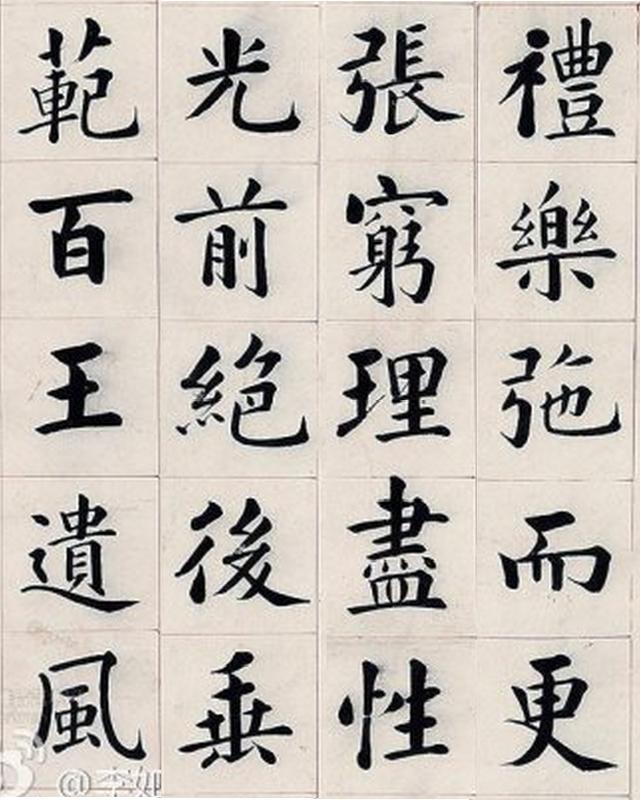 禮樂弛而更
張窮理盡性
光前絕後垂
範百王遺風
@李如